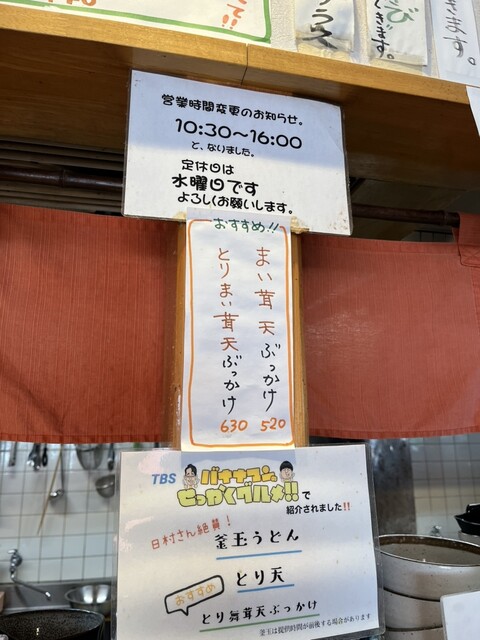 て!!
うどん
び
ぎます。
きます。
営業時間変更のお知らせ。
10:30～16:00
と、なりました。
定休日は
水曜日です
よろしくお願いします。
おすすめ!!
まい茸天ぶっかけ 520
とりまい茸天ぶっかけ 630
TBS バナナマンの
せっかくグルメ!!で
紹介されました!!
日村さん絶賛！
釜玉うどん
とり天
おすすめ
とり舞茸天ぶっかけ
釜玉は提供時間が前後する場合があります